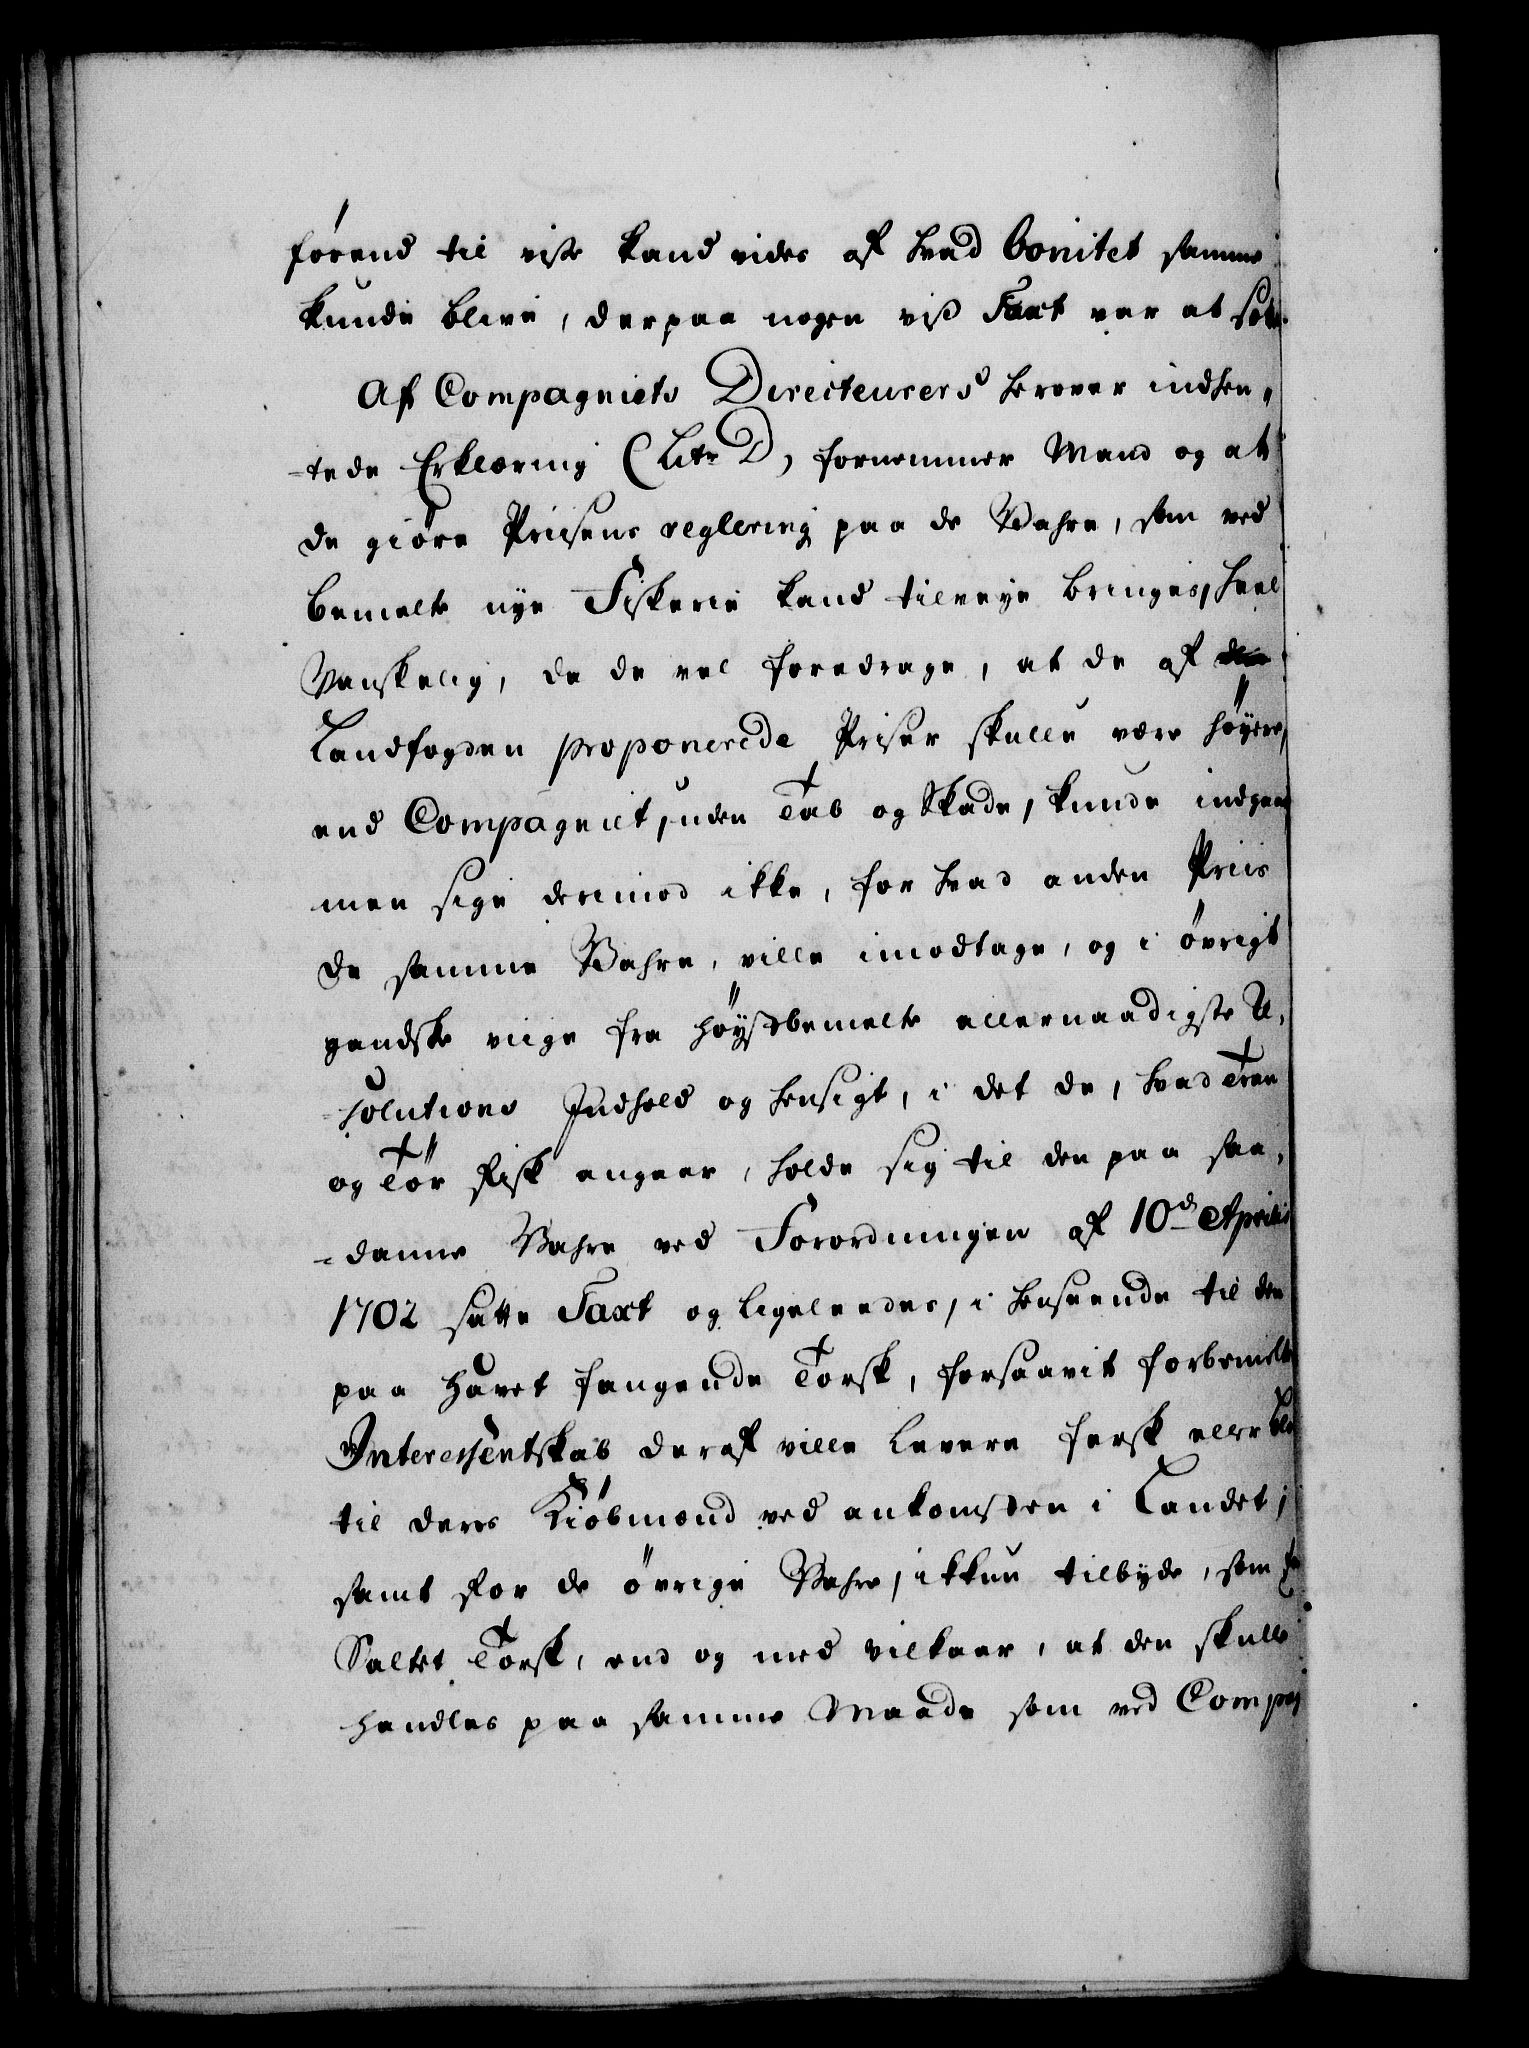 førend til viße kand vides af hvad bonitet samme
kunde blive, derpaa nogen viß Taxt var at
Af Compagniets Directeurers herover indhen„
-tede Erklæring (Litr D) fornemmer Mand og at
de giøre Priisens reglering paa de Vahre, som ved
bemelte nye Fiskerie kand tilveye bringes, heel
Vanskelig, da de vel foredrage, at de af
Landfogden proponerede Priser skulle være høyere,
end Compagniet, uden Tab og Skade, kunde indgaae
men sige derimod ikke, for hvad anden Priis
de samme Vahre, ville imodtage, og i øvrigt
gandske viige fra høystbemelte allernaadigste Re„
-solutions Indhold og hensigt, i det de, hvad Tran
og Tør Fisk angaaer, holde sig til den paa saa„
-danne Vahre ved Forordningen af 10d Aprilis
1702 satte Taxt og ligeleedes, i henseende til den
paa Havet fangende Torsk, forsaavit forbemelte
Interessentskab deraf ville levere fersk eller
til deres Kiøbmænd ved ankomsten i Landet;
samt for de øvrige Vahre, ikkun tilbyde, som
Saltet Torsk, end og med vilkaar, at den skulle
handles paa samme Maade som ved Compag